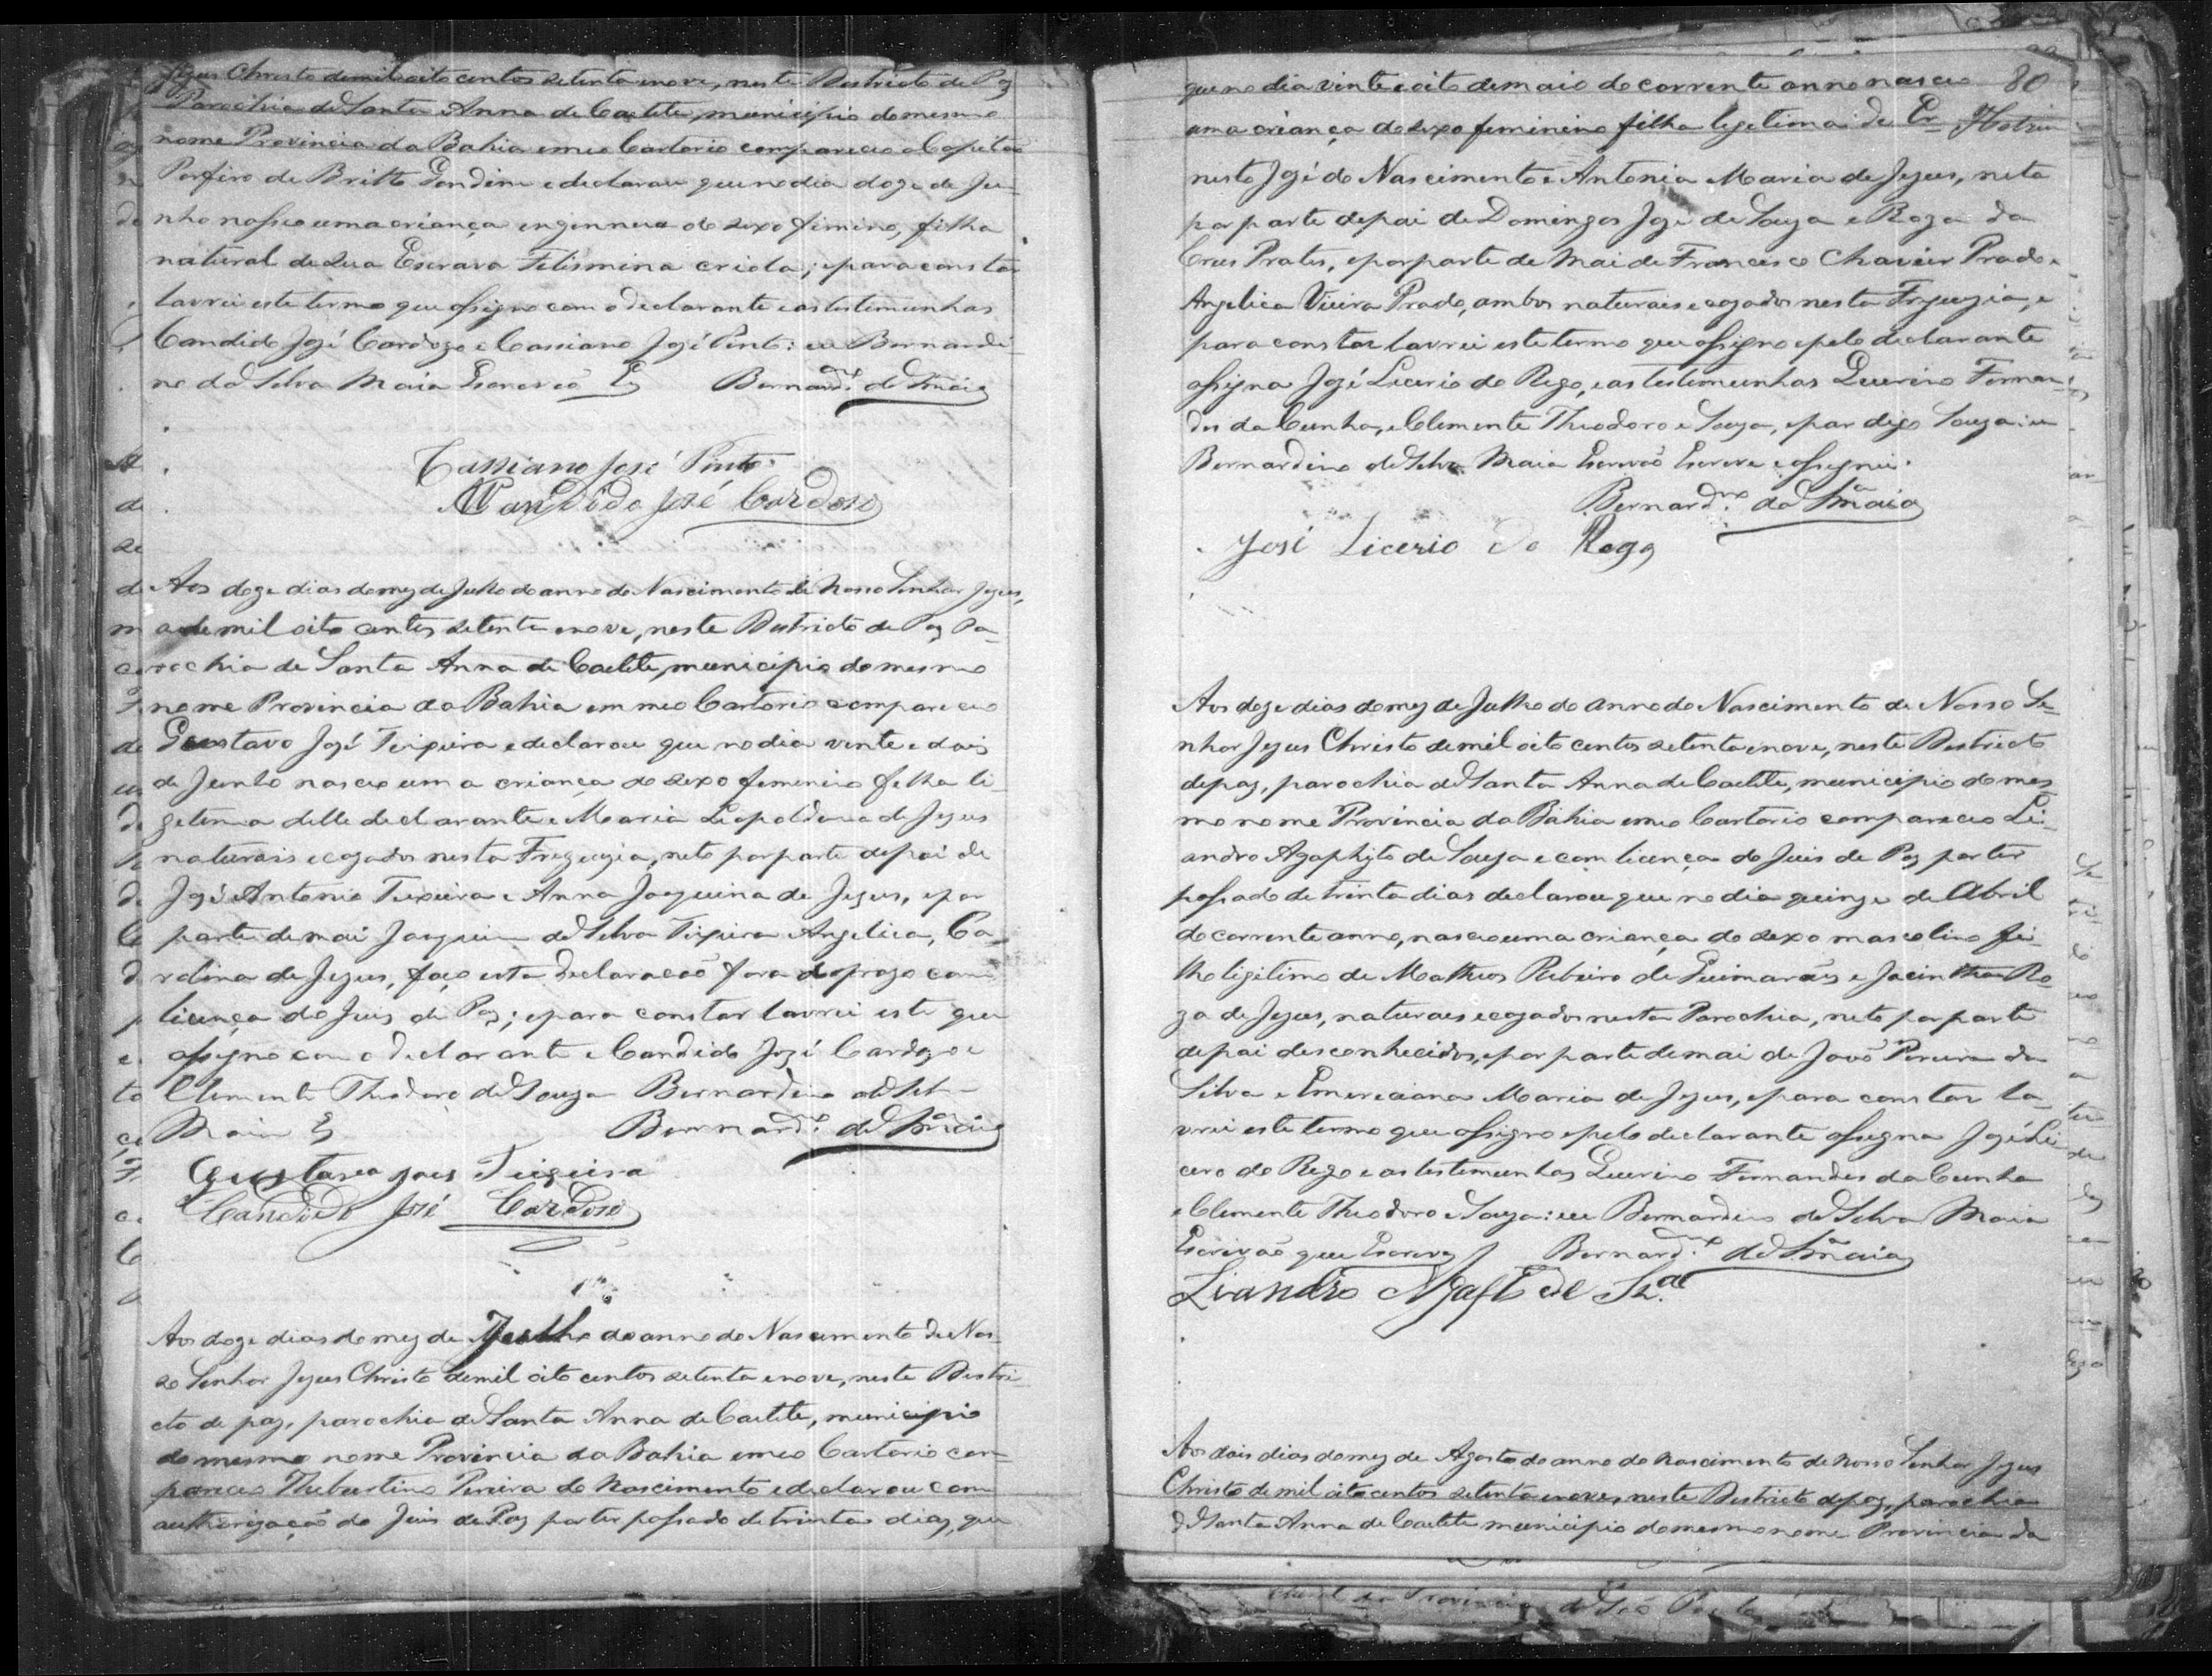 Jezus Christo demil oito centos setenta enove, neste Destricto de Paz
Parochia de Santa Anna de Caetite, municipio do mesmo
nome Provincia da Bahia emeo Cartorio compareceo o Capitão
Porfiro de Britto Gondim e declarou que no dia doze de Ju-
nho nasseo uma criança ingennua do sexo feminino, filha
natural de sua Escrava Felismina criola; epara constar
lavrei este termo que assigno com o declarante e as testemunhas
Candido José Cardozo e Cassiano José Pinto: eu Bernardi-
no da Silva Maia Escrivão Es Bernardno da Sa Maia
Cassiano José Pinto
Candido José Cardoso
Aos doze dias do mez de Julho do anno do Nascimento de Nosso Senhor Jezus,
de mil oito centos setenta enove, neste Destricto de Paz Pa-
rochia de Santa Anna de Caetite, municipio do mesmo
nome Provincia da Bahia em meo Cartorio compareceo
Gustavo José Teixeira e declarou que no dia vinte e dois
de Junho nasceo uma criança do sexo feminino filha li-
getima delle declarante e Maria Leopoldina de Jezus
naturais e cazados nesta Freguezia, neto por parte depai de
José Antonio Teixeira e Anna Joaquina de Jezus, e por
parte demai Joaquim da Silva Teixeira Angelica, Ca-
rolina de Jezus, faço esta declaração fora do prazo com
licença do Juis de Paz; epara constar lavrei este que
assigno com o declarante e Candido José Cardozo e
Clemente Theodoro de Souza Bernardino da Sil-
Maia Es Bernardno da Sa Maia
Gustavo José Teixeira
Candido José Cardoso
Aos doze dias do mez de Julho do anno do Nascimento de Nos-
so Senhor Jezus Christo demil oito centos setenta enove, neste Destri-
cto de paz, parochia de Santa Anna de Caetite, municipio
do mesmo nome Provincia da Bahia emeo Cartorio com-
pareceo Theburtino Pereira do Nascimento e declarou com
authorização do Juis de Paz por ter passado de trinta dias, que
80
que no dia vinte e oito demaio do corrente anno nasceo
uma criança do sexo feminino filha legetima de Er-
nesto José do Nascimento e Antonia Maria de Jezus, neta
por parte depai de Domingos Jose de Souza e Roza da
Crus Prates, e por parte de Mai de Francisco Chavier Prado e
Angelica Vieira Prado, ambos naturais e cazados nesta Freguezia, e
para constar lavrei este termo que assigno e pelo declarante
assigna José Licerio do Rego, e as testemunhas Querino Fernan-
des da Cunha, e Clemente Theodoro e Souza, e par digo Souza: eu
Bernardino da Silva Maia Escrivão Escreve e assignei.
Bernardno da Sa Maia
José Licerio do Rego
Aos doze dias do mez de Julho do anno do Nascimento de Nosso Se-
nhor Jezus Christo demil oito centos setenta enove, neste Destricto
depaz, parochia de Santa Anna de Caetite, municipio do mes-
mo nome Provincia da Bahia emeo Cartorio compareceo Li-
andro Agaphyto de Souza e com licença do Juis de Paz por ter
passado de trinta dias declarou que no dia quinze de Abril
do corrente anno, nasceo uma criança do sexo mascolino fi-
lho ligitimo de Matheos Ribeiro de Guimarães e Jacintha Ro-
za de Jezus, naturaes e cazados nesta Parochia, neto por parte
depai desconhecidos, e por parte demai de João Pereira da
Silva e Emereciana Maria de Jezus, epara constar la-
vrei este termo que assigno e pelo declarante assigna José Li-
cero do Rego e as testemunhas Querino Fernandes da Cunha
e Clemente Theodoro e Souza: eu Bernardino da Silva Maia
Escrivão que Escrevy Bernardno da Sa Maia
Liandro Agaft de Sza
Aos dois dias do mez de Agosto do anno do nascimento de nosso Senhor Jezus
Christo de mil oito centos setenta enove, neste Destricto depaz, parochia
de Santa Anna de Caetite municipio do mesmo nome Provincia da